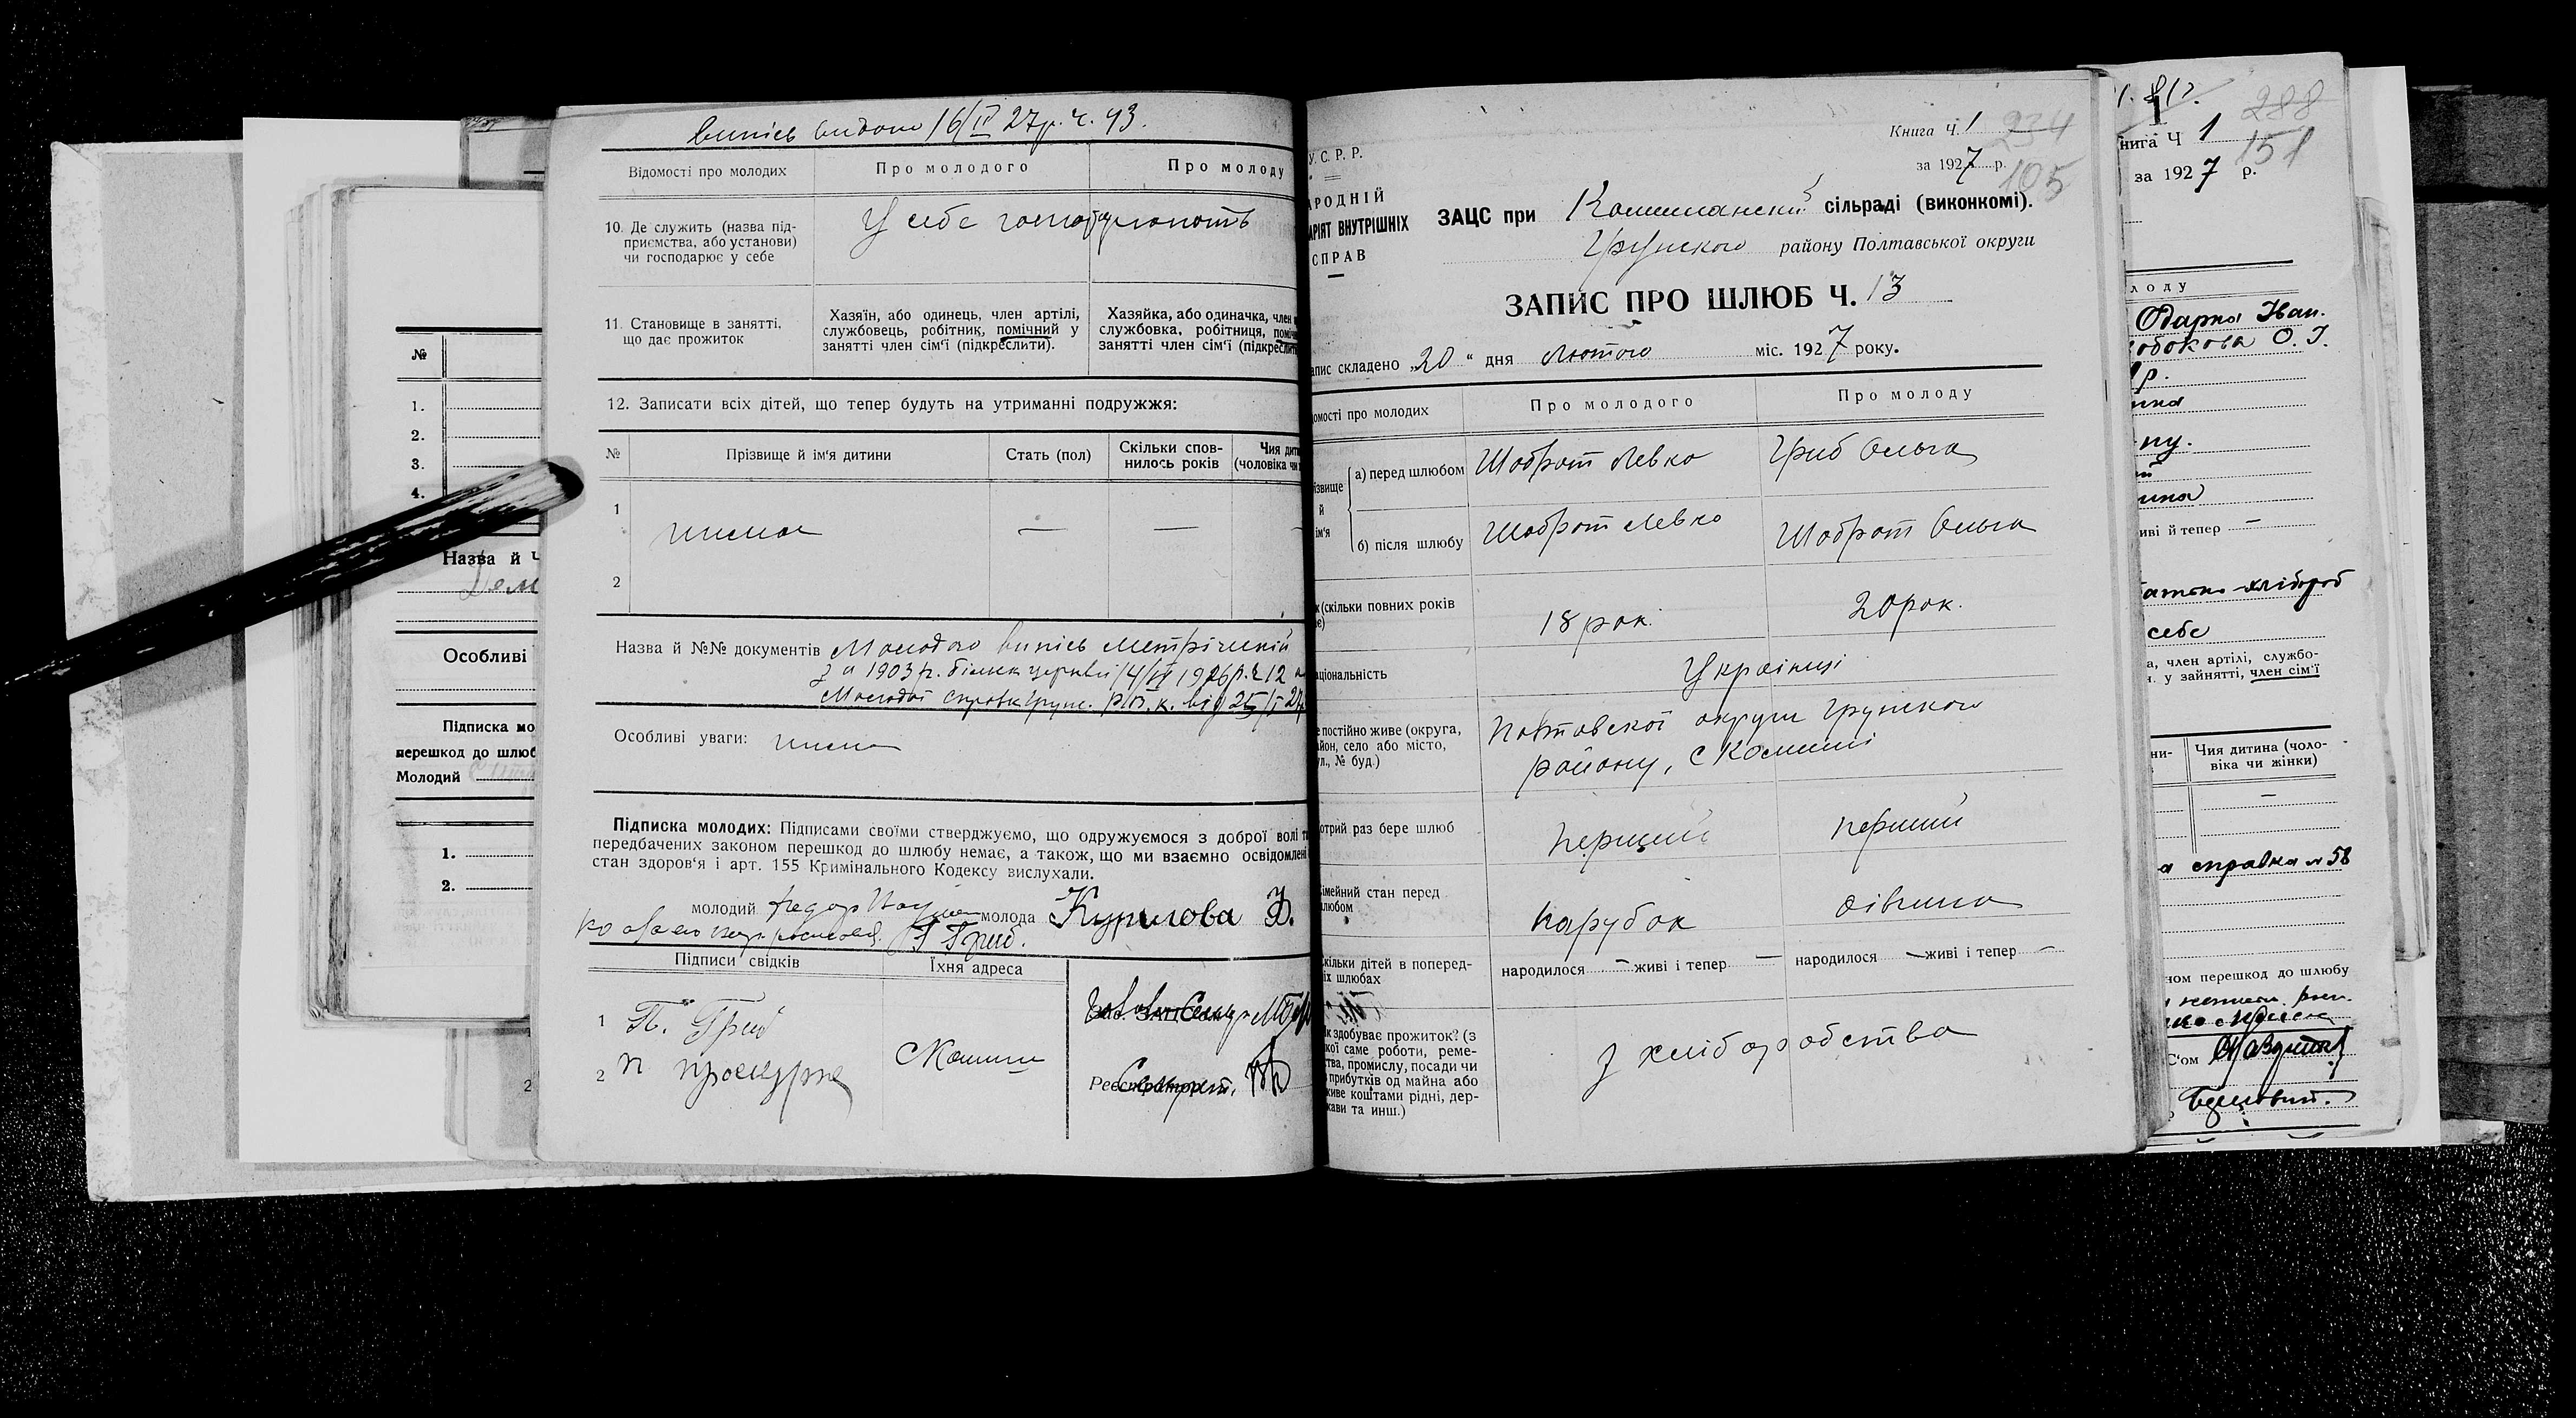 №
1.
2.
3.
4.
Назва й Ч
Дем
Особливі
Підписка мо
перешкод до шлюб
Молодий
1.
2.
2
випись видана 16/IV 27р. ч. 43.
Відомості про молодих
Про молодого
Про молоду
10. Де служить (назва під-
приємства, або установи)
чи господарює у себе
У себе господарюють
11. Становище в занятті,
що дає прожиток
Хазяїн, або одинець, член артілі,
службовець, робітник, помічний у
занятті член сім'ї (підкреслити).
Хазяйка, або одиначка, член
службовка, робітниця, поміч
занятті член сім'ї (підкреслит
12. Записати всіх дітей, що тепер будуть на утриманні подружжя:
№
Прізвище й ім'я дитини
Стать (пол)
Скільки спов-
нилось років
Чия дити
(чоловіка чи
1
нима — —
2
Назва й №№ документів Молодого випись метрічний
за 1903 р. церкви 14/VI 1926 р. ч 12
Молодої справка Грунс. Р.В.К. від 25/I 27р
Особливі уваги: нима
Підписка молодих: Підписами своїми стверджуємо, що одружуємося з доброї волі т
передбачених законом перешкод до шлюбу немає, а також, що ми взаємно освідомлені
стан здоров'я і арт. 155 Кримінального Кодексу вислухали.
молодий Федор молода Курилова Ф.
Гриб.
Підписи свідків
Їхня адреса
1 П. Гриб
2 п проскурня
С Комиши
Зав. ЗАЦСом
Реєстратор
У. С. Р. Р.
АРОДНІЙ
АРІЯТ ВНУТРІШНІХ
СПРАВ
Книга Ч. 1
234
за 1927 р.
105
ЗАЦС при Комишанскій сільраді (виконкомі).
Грунского району Полтавської округи
ЗАПИС ПРО ШЛЮБ Ч. 13
апис складено „20“ дня Лютого міс. 1927 року.
омості про молодих
Про молодого
Про молоду
ізвище
й
ім'я
а) перед шлюбом
Шаврат Левко
Гриб Ольга
б) після шлюбу
Шаврат Левко
Шаврат Ольга
к (скільки повних років
е)
18 рок.
20 рок.
аціональність
Українці
е постійно живе (округа,
айон, село або місто,
ул., № буд.)
Полтавскої округи Грунского
району, с Комиші
отрий раз бере шлюб
перший
перший
імейний стан перед
шлюбом
парубок
дівчина
кільки дітей в поперед-
іх шлюбах
народилося — живі і тепер —
народилося — живі і тепер —
к здобуває прожиток? (з
кої саме роботи, реме-
тва, промислу, посади чи
прибутків од майна або
живе коштами рідні, дер-
жави та инш.)
з хліборобства
288
нига Ч 1
151
за 1927 р.
лоду
Одарка Іван.
обокова О. І.
р.
иві й тепер —
хлібороб
себе
а, член артілі, службо-
н. у зайнятті, член сім'ї
ни-
Чия дитина (чоло-
віка чи жінки)
—
а справка № 58
ном перешкод до шлюбу
С'ом